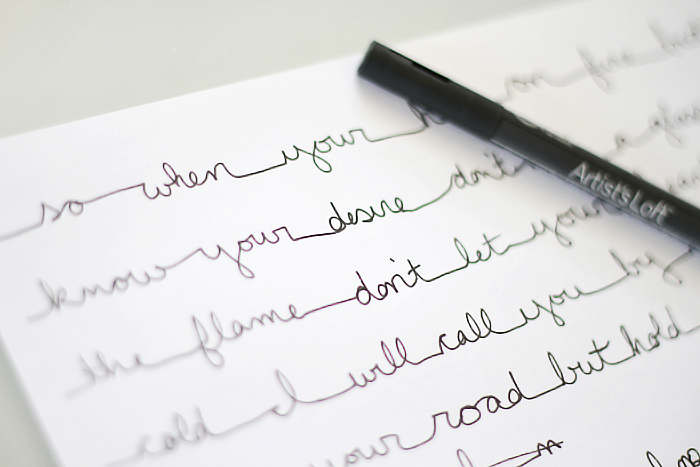 so when your on fire
know your desire don't a glass
the flame don't let your
cold I will call you by
your road but hold
Artist's Loft